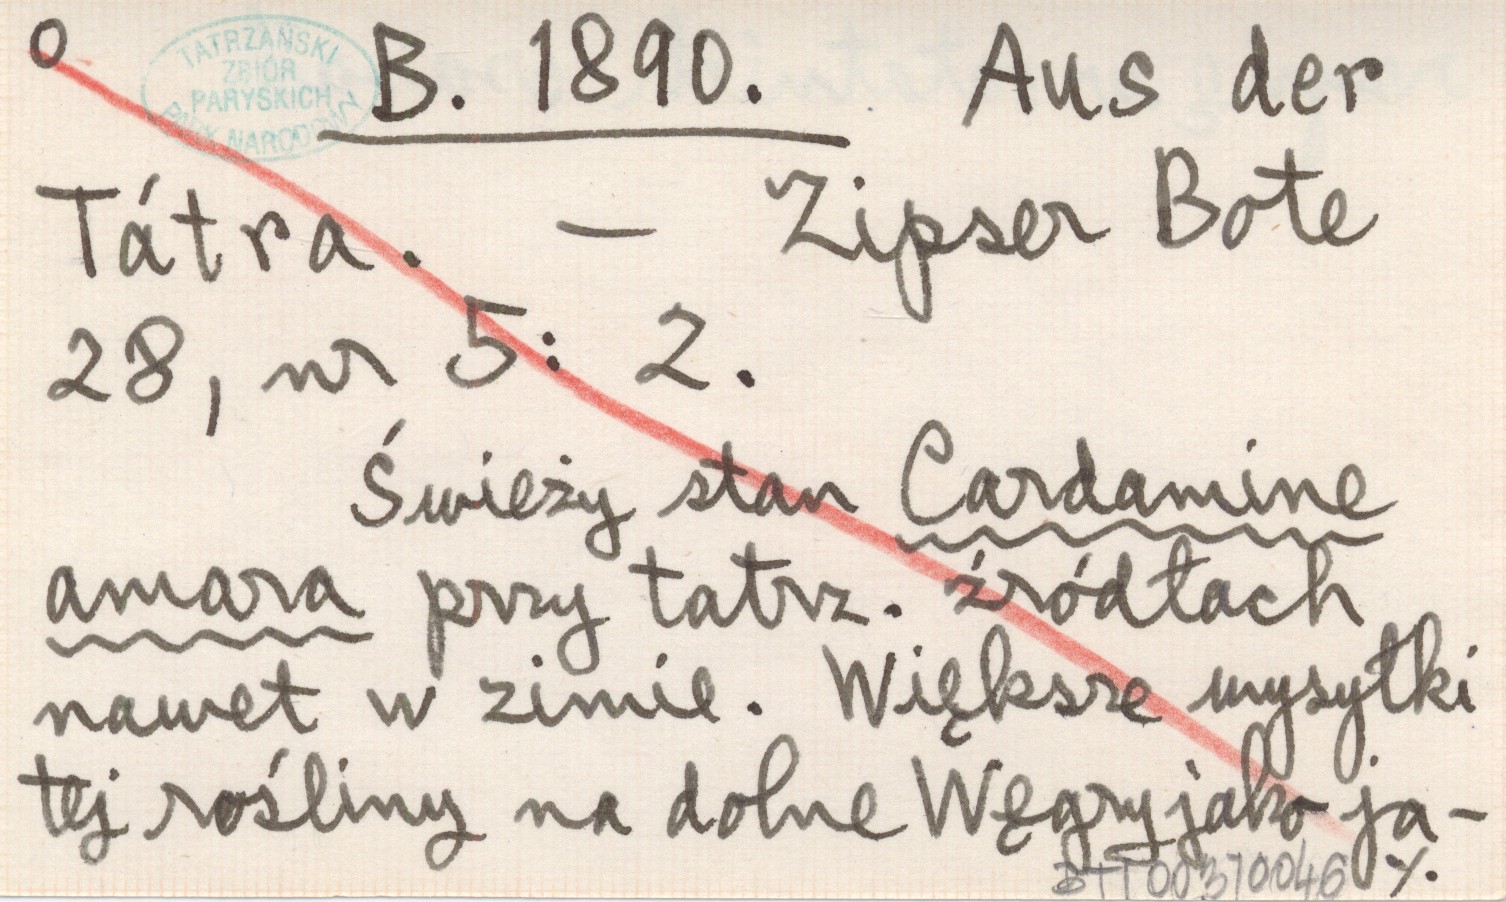 O
TATRZAŃSKI
ZBIÓR
PARYSKICH
PARK NARODOWY
B. 1890. Aus der
Tátra. — Zipser Bote
28, nr 5: 2.
Świeży stan Cardamine
amara przy tatrz. źródłach
nawet w zimie. Większe wysyłki
tej rośliny na dolne Węgry jako ja-
BTT00370046 /.